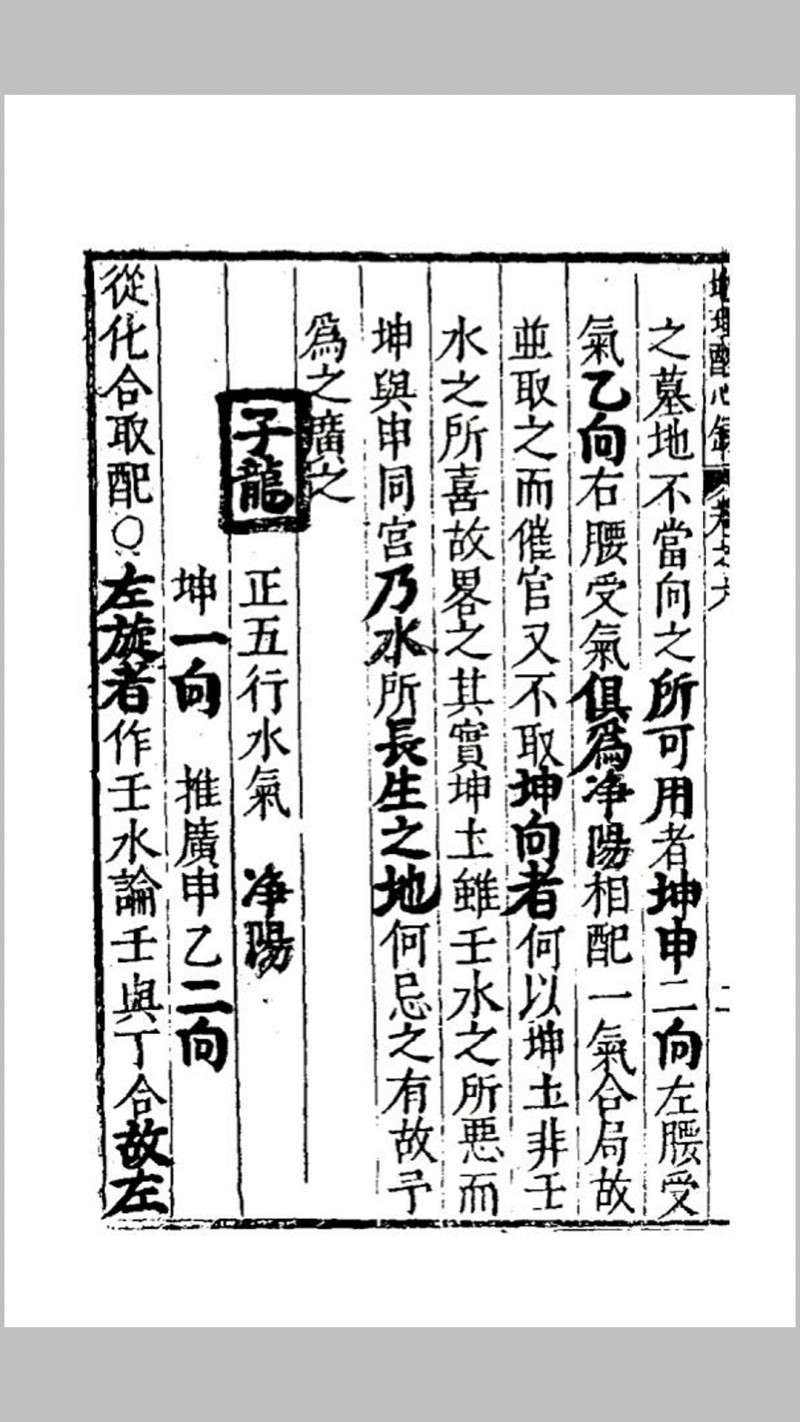 地理醒心錄 卷之六
之墓地不當向之所可用者坤申二向左腰受
氣乙向右腰受氣俱爲净陽相配一氣合局故
並取之而催官又不取坤向者何以坤土非壬
水之所喜故畧之其實坤土雖壬水之所惡而
坤與申同宫乃水所長生之地何忌之有故予
爲之廣之
子龍 正五行水氣 净陽
坤一向 推廣申乙二向
從化合取配○左旋者作壬水論壬與丁合故左